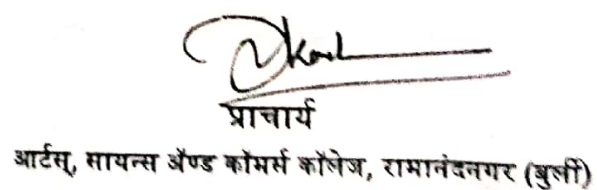 प्राचार्य
आर्टस्, सायन्स ॲण्ड कॉमर्स कॉलेज, रामानंदनगर (बुर्ली)